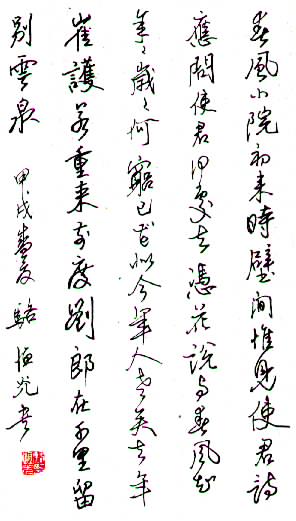 春風小院初来時壁間惟見使君詩
應問使君何處去憑花說與春風知
年々歲々何窮已花似今年人老矣去年
崔護若重来前度劉郎在千里留
別雲泉 甲戌春夏 駱恒光書